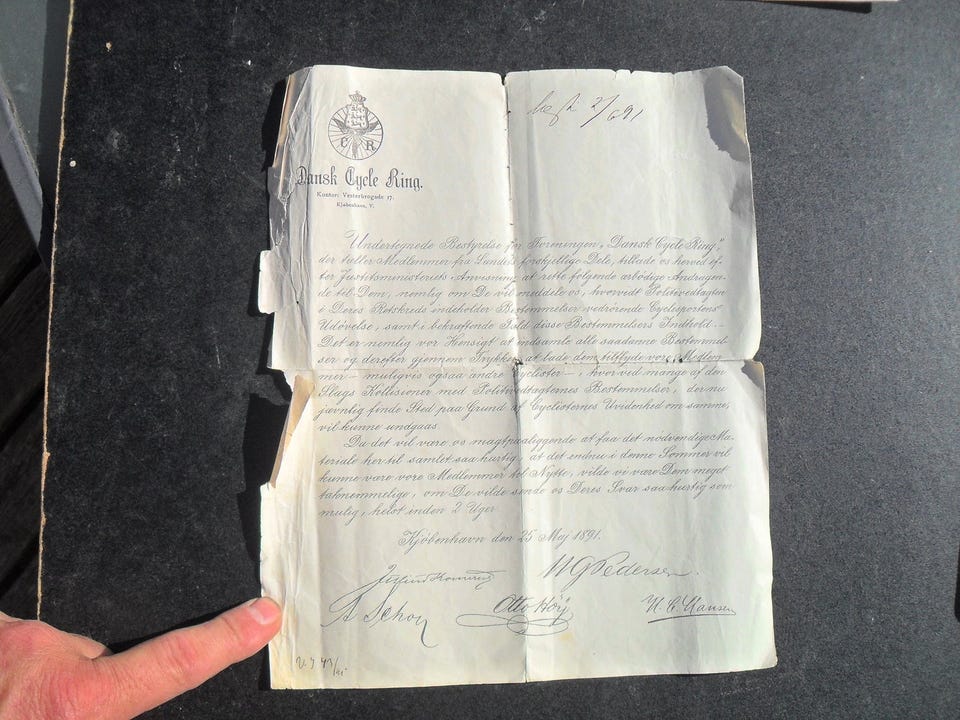 2/6 91
C R
Dansk Cycle Ring.
Kontor: Vesterbrogade 17.
Kjøbenhavn, V.
Undertegnede Bestyrelse for Foreningen „Dansk Cycle Ring",
der tæller Medlemmer fra Landets forskjellige Dele, tillade os herved ef-
ter Justitsministeriets Anvisning at rette følgende ærbødige Andragen-
de til Dem, nemlig om De vil meddele os, hvorvidt Politivedtægten
i Deres Retskreds indeholder Bestemmelser vedrørende Cyclesportens
Udøvelse, samt i bekræftende Fald disse Bestemmelsers Indhold. –
Det er nemlig vor Hensigt at indsamle alle saadanne Bestemmel-
ser og derefter gjennem Trykken at lade dem tilflyde vore Medlem-
mer – muligvis ogsaa andre Cyclister –, hvorved mange af den
Slags Kollisioner med Politivedtægternes Bestemmelser, der nu
jævnlig finde Sted paa Grund af Cyclisternes Uvidenhed om samme,
vil kunne undgaas.
Da det vil være os magtpaaliggende at faa det nødvendige Ma-
teriale hertil samlet saa hurtig, at det endnu i denne Sommer vil
kunne være vore Medlemmer til Nytte, vilde vi være Dem meget
taknemmelige, om De vilde sende os Deres Svar saa hurtig som
mulig, helst inden 2 Uger.
Kjøbenhavn den 25 Maj 1891.
Pedersen
A Schou Otto Höij H. C. Hansen